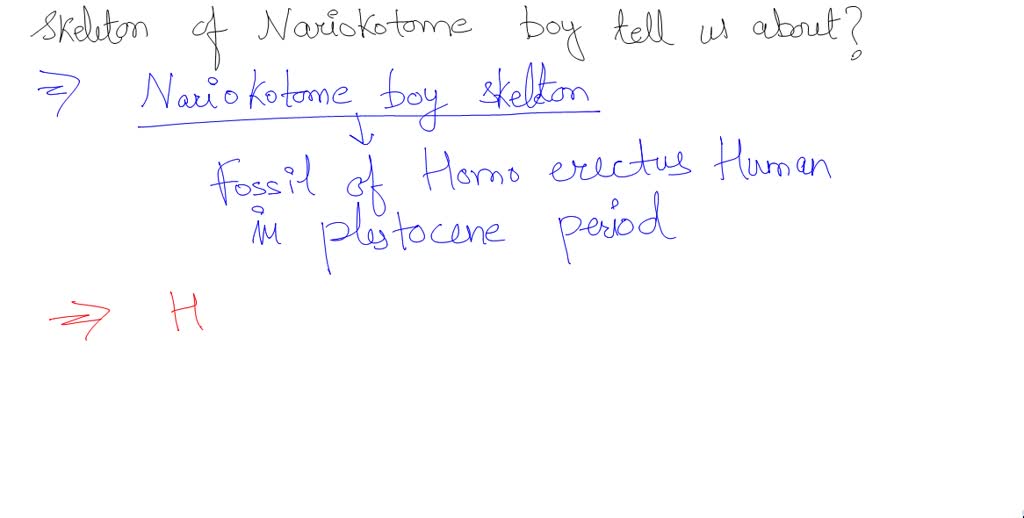 Skeleton of Nariokotome boy tell us about?
⇒ Nariokotome boy skelton
↓
Fossil of Homo erectus Human
in plestocene period
⇒ H